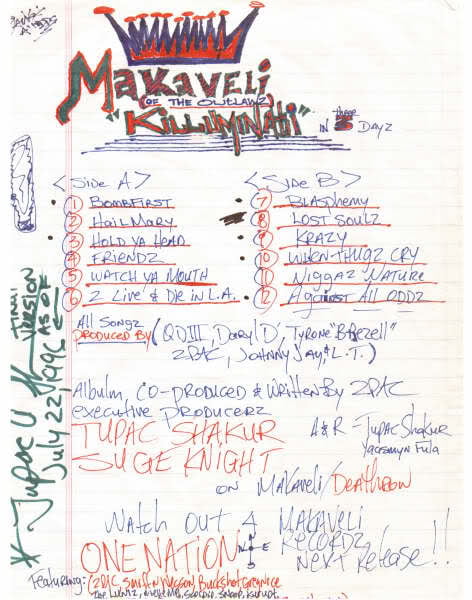 Makaveli
(OF THE OUTLAWZ)
"Killuminati"
IN three DAYZ
<Side A>
1 BombFirst
2 Hail Mary
3 Hold Ya Head
4 Friendz
5 Watch Ya Mouth
6 2 Live & Die in L.A.
<Side B>
7 Blasphemy
8 Lost Soulz
9 Krazy
10 When Thugz Cry
11 Niggaz Nature
12 Against All Oddz
All Songz
Produced By (QDIII, Daryl D', Tyrone
2PAC, Johnny Jay, & L.T.)
Albulm, co-produced & written By 2PAC
executive Producerz
TUPAC SHAKUR
SUGE KNIGHT
A&R - Tupac Shakur
Yaasmyn Fula
on Makaveli/Deathrow
Watch Out 4 MAKAVELI
RECORDZ
Next Release!!
ONE NATION
Featuring: 2PAC, Smif n Wesson, Buckshot,
The Luniz, Scoobie, Snoop, Kurupt
Final
Version
AS OF
July 22, 1996
Tupac